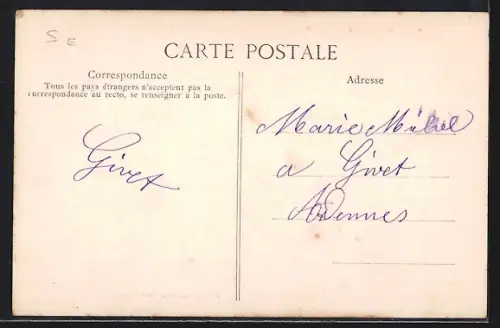 S E
CARTE POSTALE
Correspondance
Tous les pays étrangers n'acceptent pas la
correspondance au recto, se renseigner à la poste.
Adresse
Givet
Marie
a Givet
Ardennes